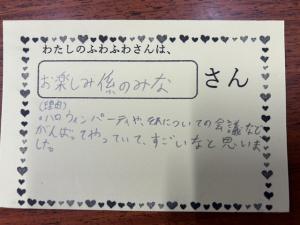 わたしのふわふわさんは、
お楽しみ係のみな さん
(理由)
・ハロウィンパーティや、それについての会議など
がんばってやっていて、すごいなと思いま
した。